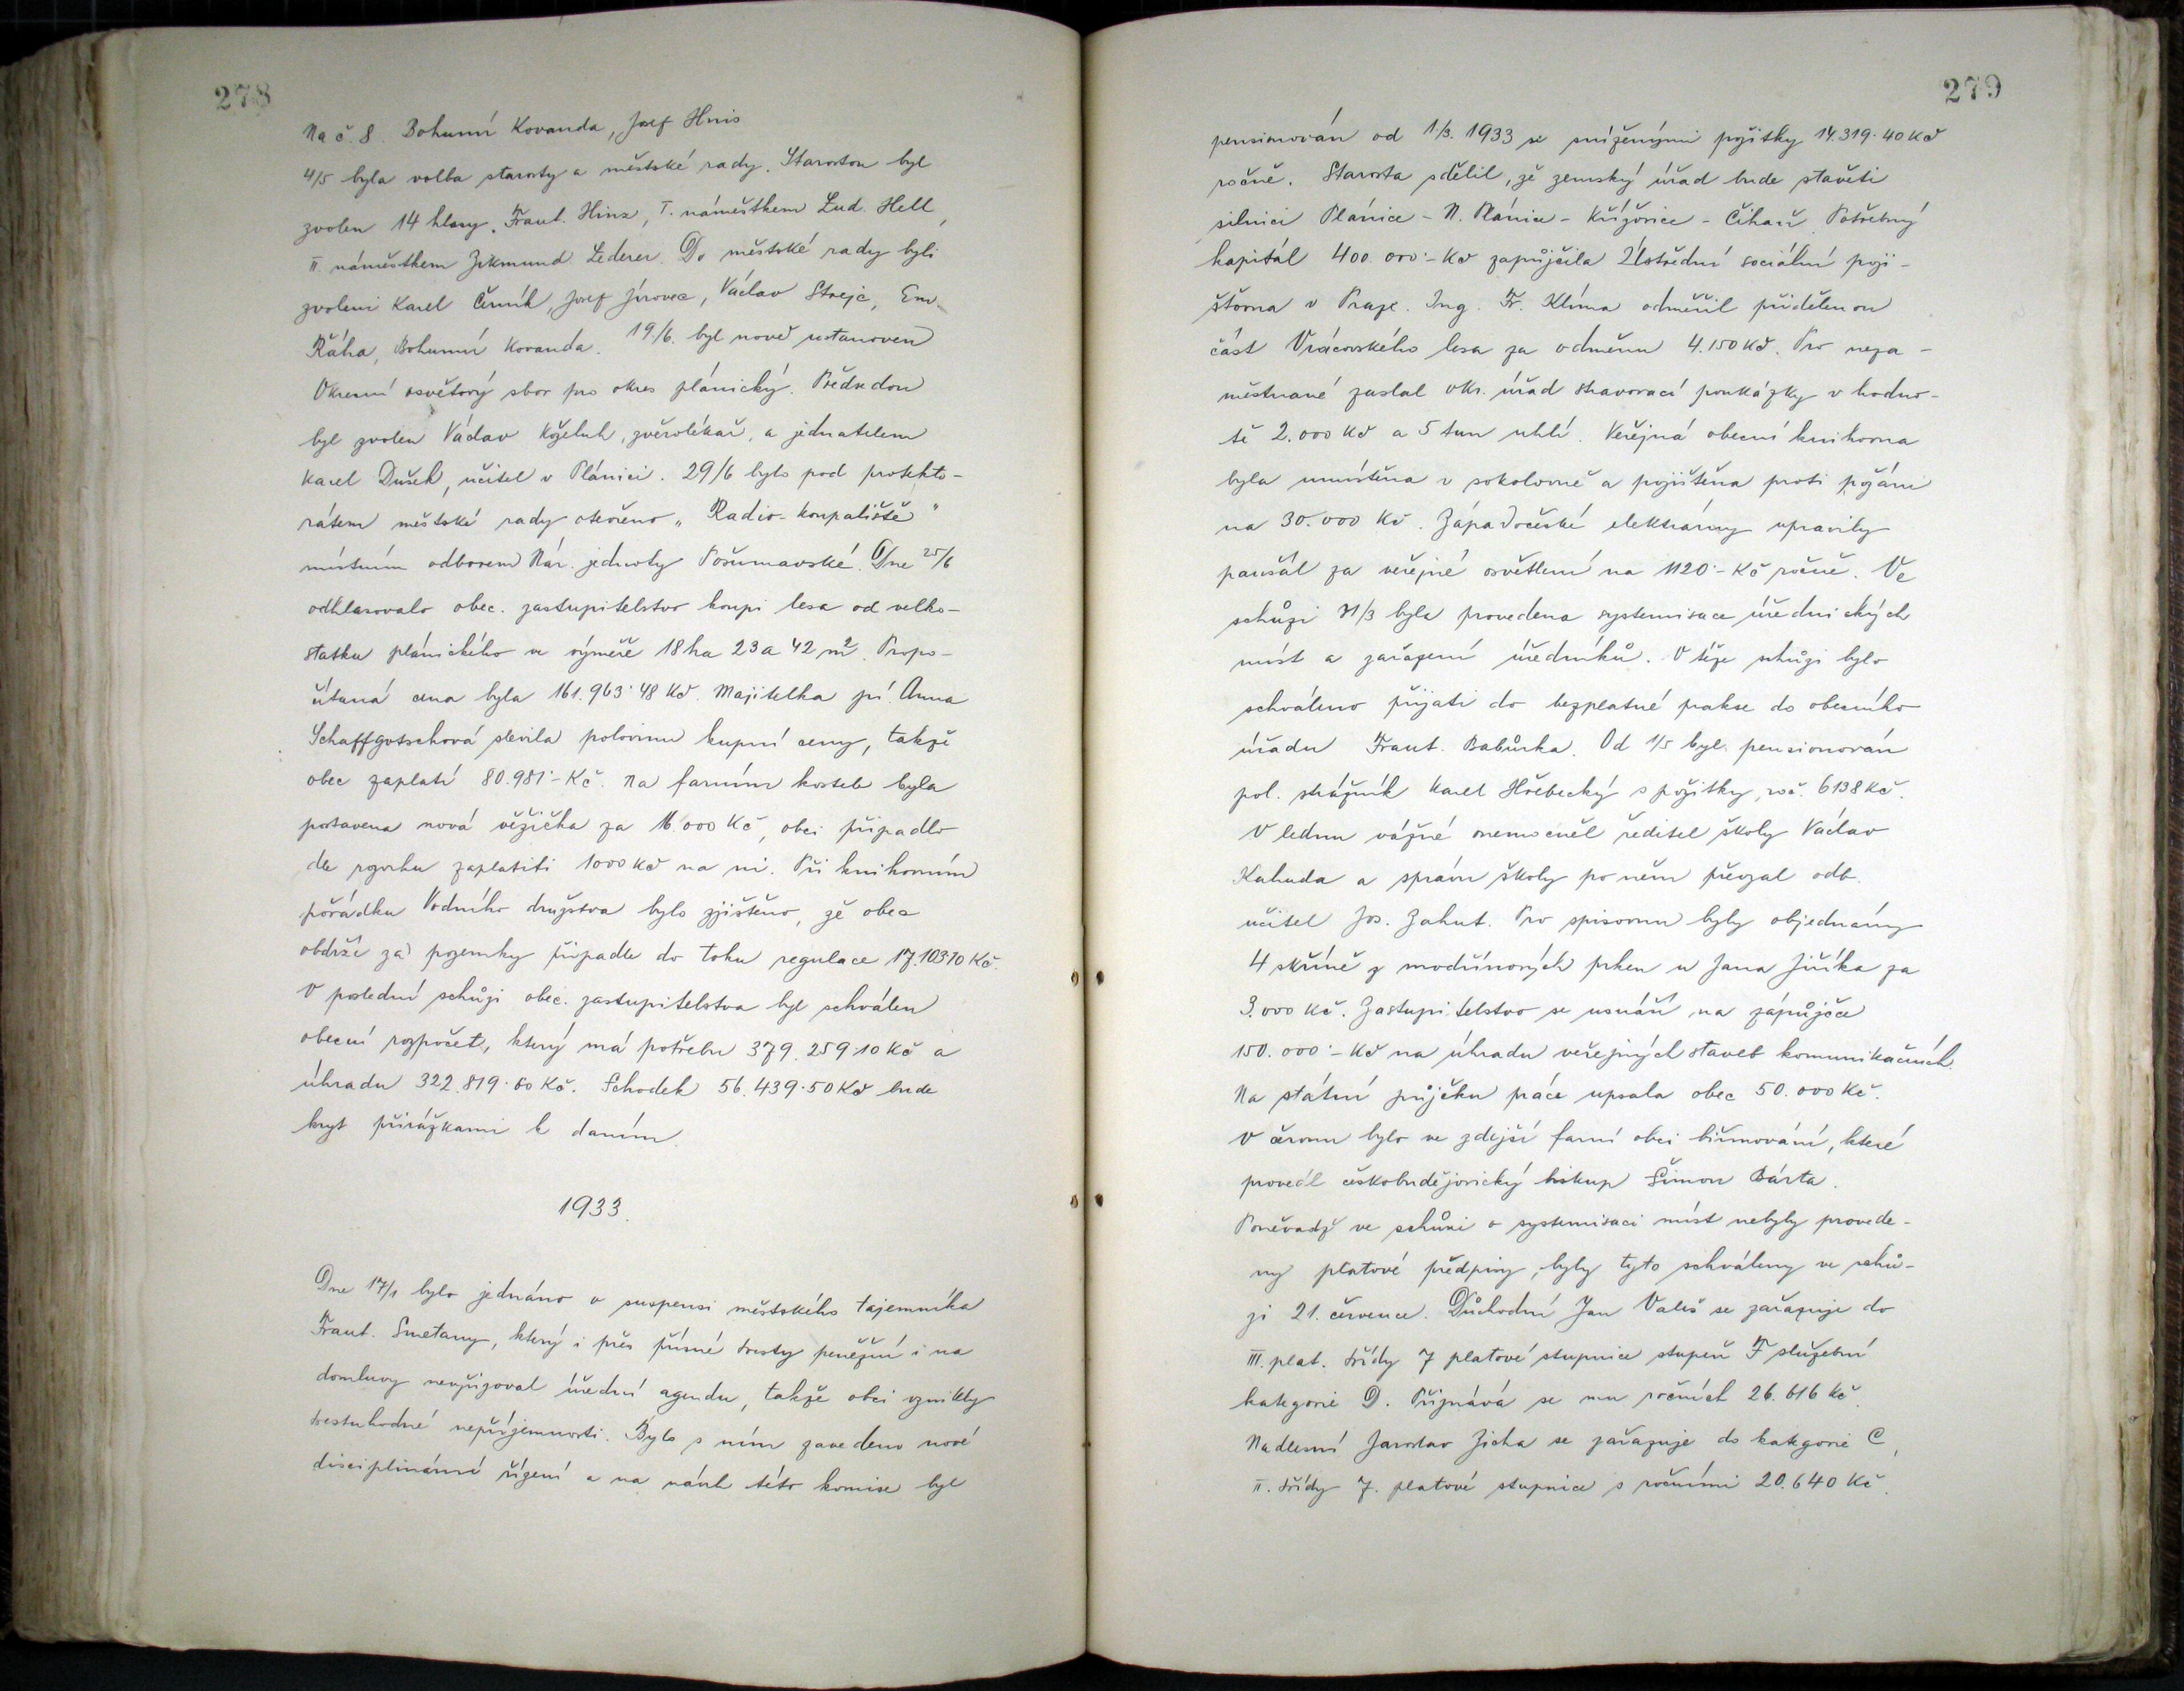 278
Na č. 8. Bohumí Kovanda, Josef Hinis
4/5 byla volba starosty a městské rady. Starostou byl
zvolen 14 hlasy Frant. Hinz, I. náměstkem Lud. Hell,
II. náměstkem Zikmund Lederer. Do městské rady byli
zvoleni Karel Černík, Josef Jírovec, Václav Strejc, Em.
Řáha, Bohumí Kovanda. 19./6. byl nově ustanoven
Okresní osvětový sbor pro okres plánický. Předsedou
byl zvolen Václav Koželuh, zvěrolékař, a jednatelem
Karel Dušek, učitel v Plánici. 29/6 bylo pod protekto-
rátem městské rady otevřeno „Radio-koupaliště"
místním odborem Nár. jednoty Pošumavské. Dne 25/6
odhlasovalo obec. zastupitelstvo koupi lesa od velko-
statku plánického ve výměře 18 ha 23 a 42 m². Propo-
čítaná cena byla 161.963·48 Kč. Majitelka pí. Anna
Schaffgotschová slevila polovinu kupní ceny, takže
obec zaplatí 80.981·- Kč. Na farním kostele byla
postavena nová věžička za 16.000 Kč, obci připadlo
dle rozvrhu zaplatiti 1000 Kč na ni. Při knihovním
pořádku Vodního družstva bylo zjištěno, že obec
obdrží za pozemky připadlé do toku regulace 17.103·10 Kč.
V poslední schůzi obec. zastupitelstva byl schválen
obecní rozpočet, který má potřebu 379.259·10 Kč a
úhradu 322.819·60 Kč. Schodek 56.439·50 Kč bude
kryt přirážkami k daním.
1933.
Dne 17/1 bylo jednáno o suspensi městského tajemníka
Frant. Smetany, který i přes přísné tresty peněžní i na
domluvy nevyřizoval úřední agendu, takže obci vznikly
trestuhodné nepříjemnosti. Bylo s ním zavedeno nové
disciplinární řízení a na návrh této komise byl
279
pensionován od 1/3. 1933 se sníženými požitky 14.319·40 Kč
ročně. Starosta sdělil, že zemský úřad bude stavěti
silnici Plánice - N. Plánice - Křížovice - Čihaň. Potřebný
kapitál 400.000·- Kč zapůjčila Ústřední sociální poji-
šťovna v Praze. Ing. Fr. Klíma odměřil přidělenou
část Vracovského lesa za odměnu 4.150 Kč. Pro neza-
městnané zaslal okr. úřad stravovací poukázky v hodno-
tě 2.000 Kč a 5 tun uhlí. Veřejná obecní knihovna
byla umístěna v sokolovně a pojištěna proti požáru
na 30.000 Kč. Západočeské elektrárny upravily
paušál za veřejné osvětlení na 1120·- Kč ročně. Ve
schůzi 31/3 byla provedena systemisace úřednických
míst a zařazení úředníků. V téže schůzi bylo
schváleno přijati do bezplatné prakse do obecního
úřadu Frant. Babůrka. Od 1/5 byl pensionován
pol. strážník Karel Hřebecký s požitky roč. 6138 Kč.
V lednu vážně onemocněl ředitel školy Václav
Kahuda a správu školy po něm převzal odb.
učitel Jos. Zahut. Pro spisovnu byly objednány
4 skříně z modřínových prken u Jana Jiříka za
3.000 Kč. Zastupitelstvo se usnáší na zápůjčce
150.000·- Kč na úhradu veřejných staveb komunikačních.
Na státní půjčku práce upsala obec 50.000 Kč.
V červnu bylo ve zdejší farní obci biřmování, které
provedl českobudějovický biskup Šimon Bárta.
Poněvadž ve schůzi o systemisaci míst nebyly provede-
ny platové předpisy, byly tyto schváleny ve schů-
zi 21. července. Důchodní Jan Valeš se zařazuje do
III. plat. třídy 7 platové stupnice stupeň F služební
kategorie D. Přiznává se mu ročních 26.616 Kč.
Nadlesní Jaroslav Zicha se zařazuje do kategorie C,
II. třídy 7. platové stupnice s ročními 20.640 Kč.